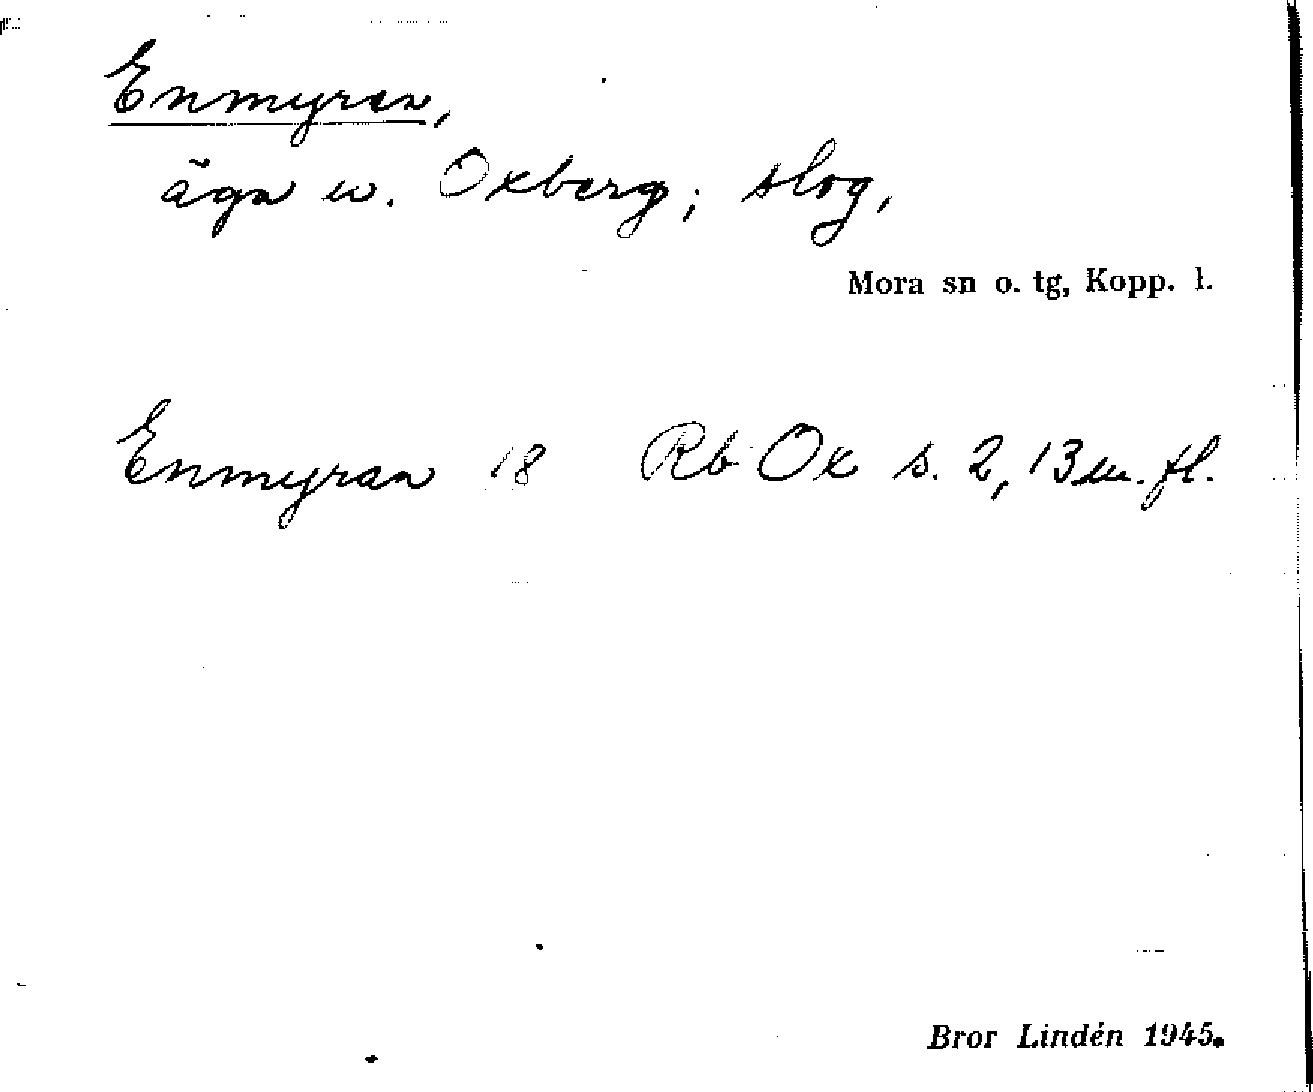 Enmyran,
äga u. Oxberg; slog,
Mora sn o. tg, Kopp. l.
Enmyran 18 Rb Ox s. 2, 13 m. fl.
Bror Lindén 1945.